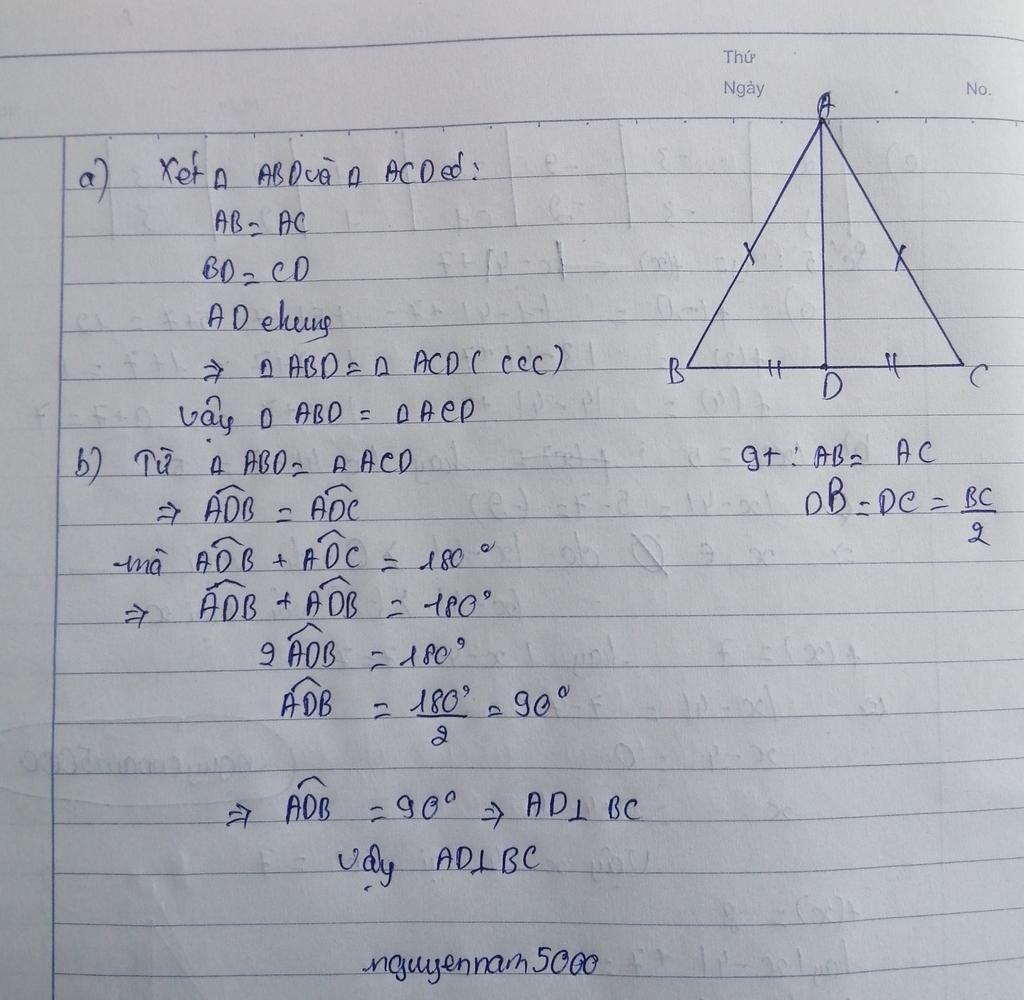 Thứ
Ngày
No.
a) Xét Δ ABD và Δ ACD có:
AB = AC
BD = CD
AD chung
⇒ Δ ABD = Δ ACD (ccc)
Vậy Δ ABD = Δ ACD
b) Từ Δ ABD = Δ ACD
⇒ \widehat{ADB} = \widehat{ADC}
mà \widehat{ADB} + \widehat{ADC} = 180°
⇒ \widehat{ADB} + \widehat{ADB} = 180°
2 \widehat{ADB} = 180°
\widehat{ADB} = \frac{180°}{2} = 90°
⇒ \widehat{ADB} = 90° ⇒ AD⊥ BC
Vậy AD⊥BC
A
B
D
C
gt : AB = AC
DB = DC = \frac{BC}{2}
nguyennam5000